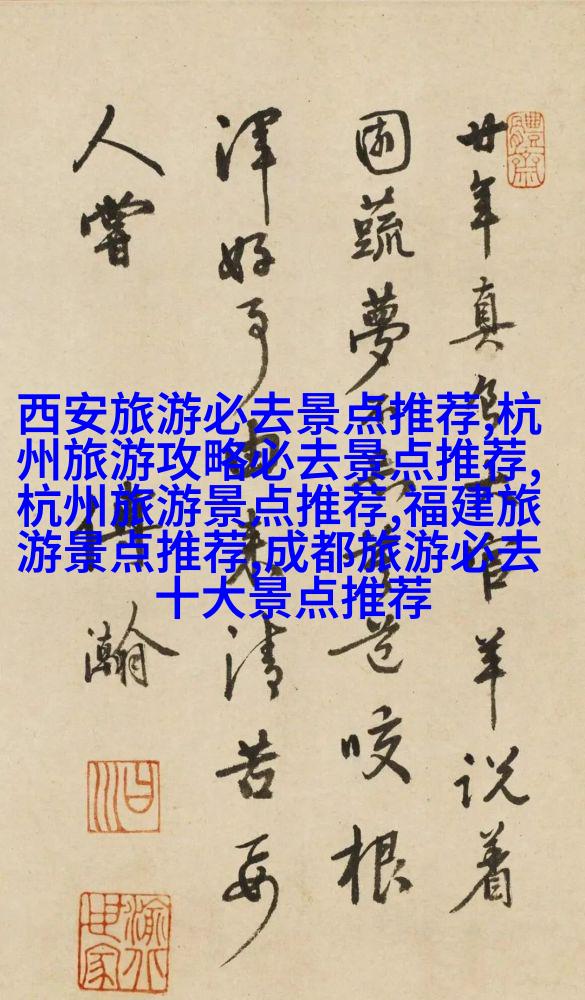 西安旅游必去景点推荐,杭
州旅游攻略必去景点推荐,
杭州旅游景点推荐,福建旅
游景点推荐,成都旅游必去
十大景点推荐
廿年真食官羊说着
園蔬夢道咬根
渾好事由来清苦要
人嘗
瀚